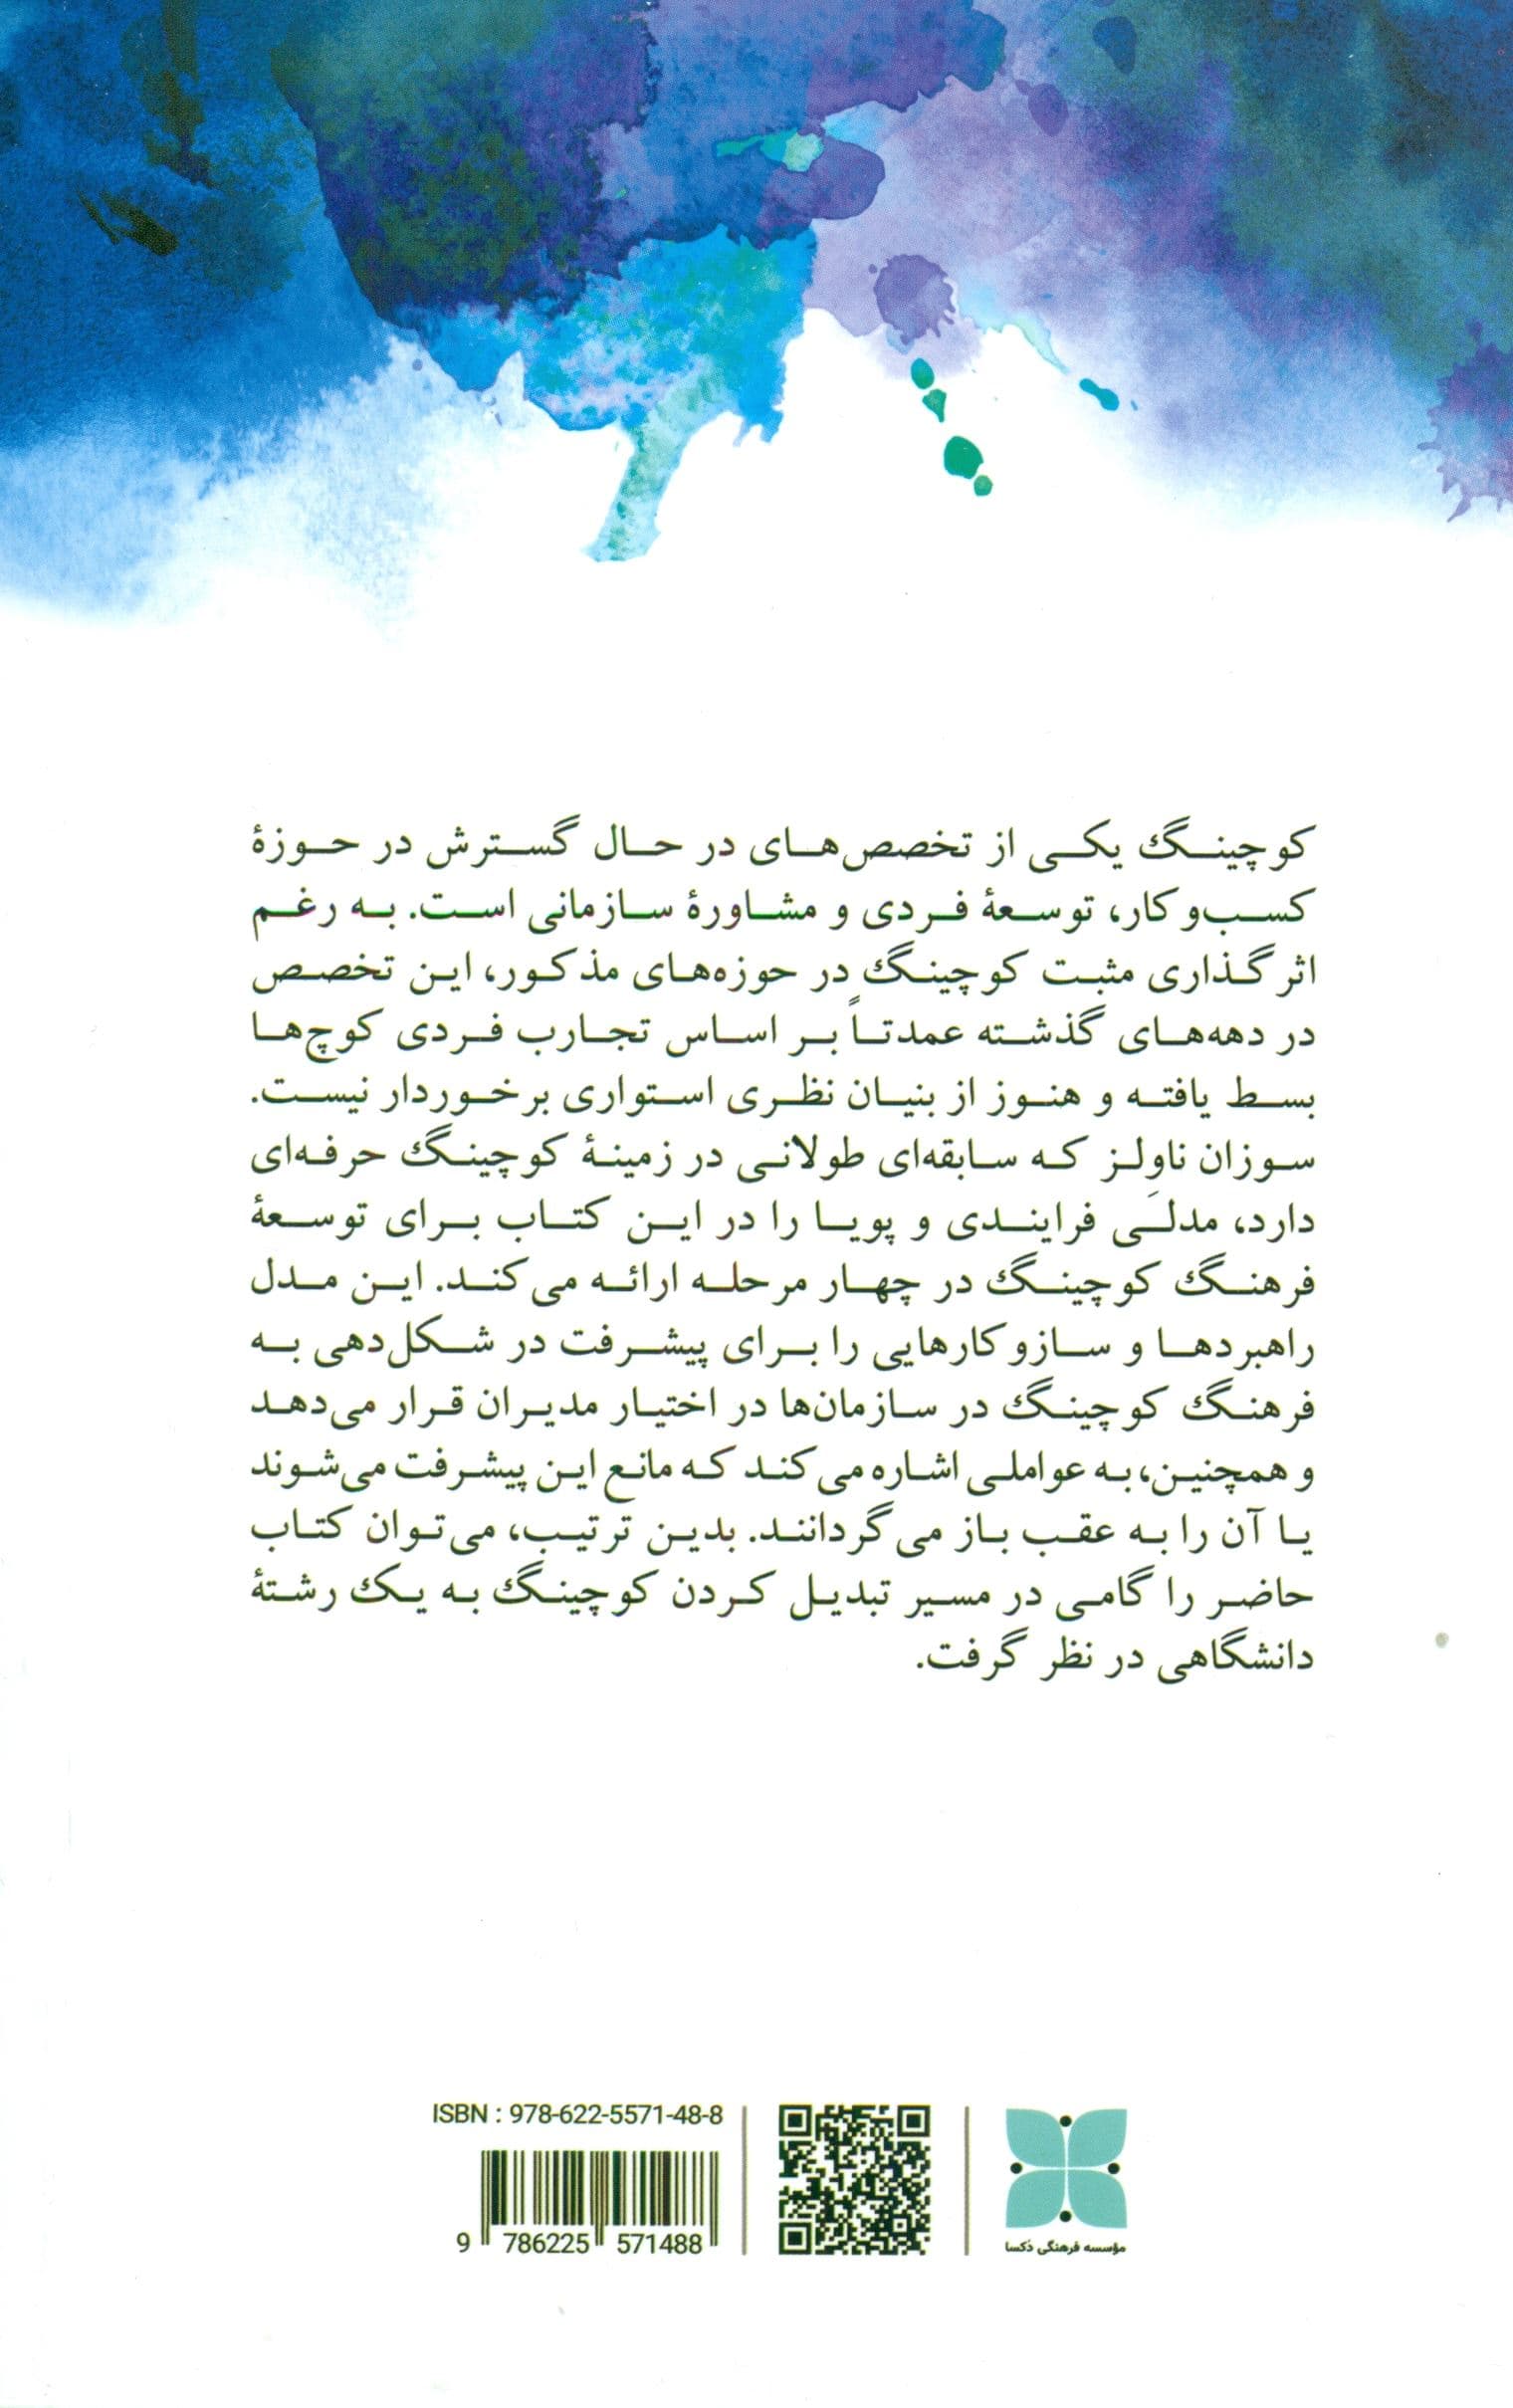 کوچینگ یکی از تخصص‌های در حال گسترش در حوزهٔ
کسب‌وکار، توسعهٔ فردی و مشاورهٔ سازمانی است. به رغم
اثرگذاری مثبت کوچینگ در حوزه‌های مذکور، این تخصص
در دهه‌های گذشته عمدتاً بر اساس تجارب فردی کوچ‌ها
بسط یافته و هنوز از بنیان نظری استواری برخوردار نیست.
سوزان ناولز که سابقه‌ای طولانی در زمینهٔ کوچینگ حرفه‌ای
دارد، مدلَی فرایندی و پویا را در این کتاب برای توسعهٔ
فرهنگ کوچینگ در چهار مرحله ارائه می‌کند. این مدل
راهبردها و سازوکارهایی را برای پیشرفت در شکل‌دهی به
فرهنگ کوچینگ در سازمان‌ها در اختیار مدیران قرار می‌دهد
و همچنین، به عواملی اشاره می‌کند که مانع این پیشرفت می‌شوند
یا آن را به عقب باز می‌گردانند. بدین ترتیب، می‌توان کتاب
حاضر را گامی در مسیر تبدیل کردن کوچینگ به یک رشتهٔ
دانشگاهی در نظر گرفت.
ISBN : 978-622-5571-48-8
9 786225 571488
مؤسسه فرهنگی دُکسا